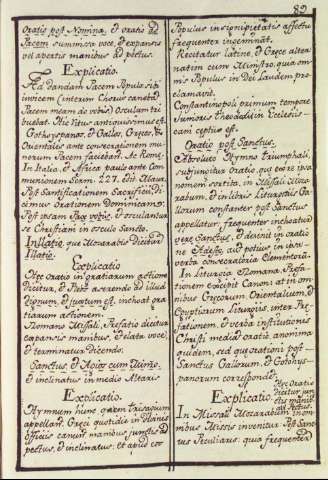 89
Oratio post Nomina, & oratio ad
Pacem summissa voce, & expansis
vel apertis manibus ad pectus.
Explicatio.
Ad dandam Pacem Populo sibi
invicem (interim Chorus canebat
Pacem meam do vobis) osculum tri
buebat. Hic Ritus antiquissimus est.
Gothyspanos, & Gallos, Grecos, &
Orientalis ante consecrationem mu
nerum Pacem faciebant. At Romę,
In Italia, & Africa paulo ante com
munionem Serm. 227. Ecce
Post Santificationem Sacrificij, di
cimus Orationem Dominicam:
Post ipsam Pax vobis, & osculantur
se Christiani in osculo Sancto.
Inllatio, que Mozarabis dicitur
Illatio.
Explicatio
Hęc Oratio in gratiarum actione
dicitur, & asserendo ad illud
Dignum, & iustum est, inchoat gra
tiarum actionem.
Romano Missali, Prefatio dicitur
expansis manibus, & elata voce
& terminatur dicendo:
Sanctus, & Agios cum
& inclinatus in medio Altaris
Explicatio.
Hymnum hunc trisagium
appellan. Greci quotidie in Divinis
officijs canun. manibus junctis ad
pectus, & inclinatus: et apud eos
Populus insigni pietatis affectu
frequenter inseminat.
Recitatur latine, & Gręce alter
natim cum Ministro, qua om
nis Populus in Dei Laudem pro
clamavit.
Constantinopoli primum tempore
Iunioris Theodosij in Ecclesia
cani cęptus est.
Oratio post Sanctus.
Absoluto Hymno Triumphali,
subjungitur Oratio, quę ex re ipsa
nomen sortita, in Missali Moza
rabum, & in libris Liturgicis Gal
lorum constanter post Sanctus
appellatur frequenter inchoatur
Vere Sanctus, & desinit in oratio
ne aut potius in ipsa
verba consecratoria Clementorum.
In Liturgia Romana, Prefa
tionem excipit Canon: at in om
nibus Grecorum Orientalium, &
Coptiarum Liturgijs, inter Pre
fationem, & verba institutionis
Christi media oratio anonima
quidem, sed quę orationi post
Sanctus Gallorum, & Gothohys-
panorum correspondet.
Hęc Oratio
dicitur jun-
ctis manib.
ad Pectus.
Explicatio
In Missali Mozarabum in om
nibus Missis invenitur Post Sanc-
tus Peculiaris: quia frequenter